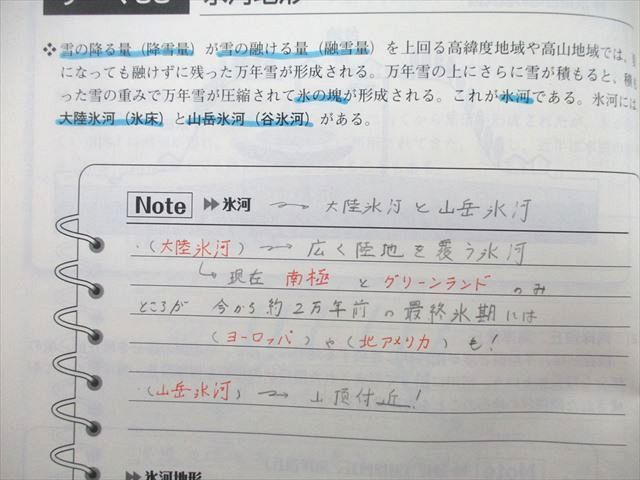 氷河地形
❖雪の降る量(降雪量)が雪の融ける量(融雪量)を上回る高緯度地域や高山地域では、
になっても融けずに残った万年雪が形成される。万年雪の上にさらに雪が積もると、積も
った雪の重みで万年雪が圧縮されて氷の塊が形成される。これが氷河である。氷河には
大陸氷河(氷床)と山岳氷河(谷氷河)がある。
Note ▶▶氷河 → 大陸氷河と山岳氷河
・(大陸氷河) → 広く陸地を覆う氷河
↳ 現在 南極 と グリーンランド のみ
ところが 今から約2万年前の最終氷期には
(ヨーロッパ)や(北アメリカ)も!
・(山岳氷河) → 山頂付近!
▶▶氷河地形